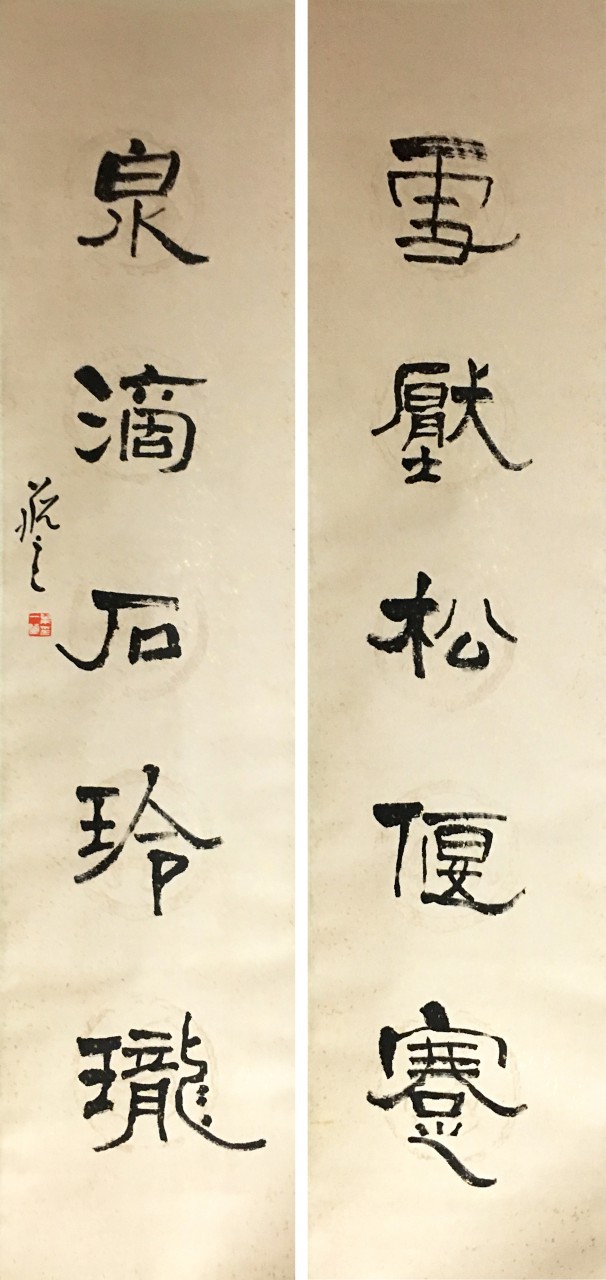 雪壓松偃蹇
泉滴石玲瓏